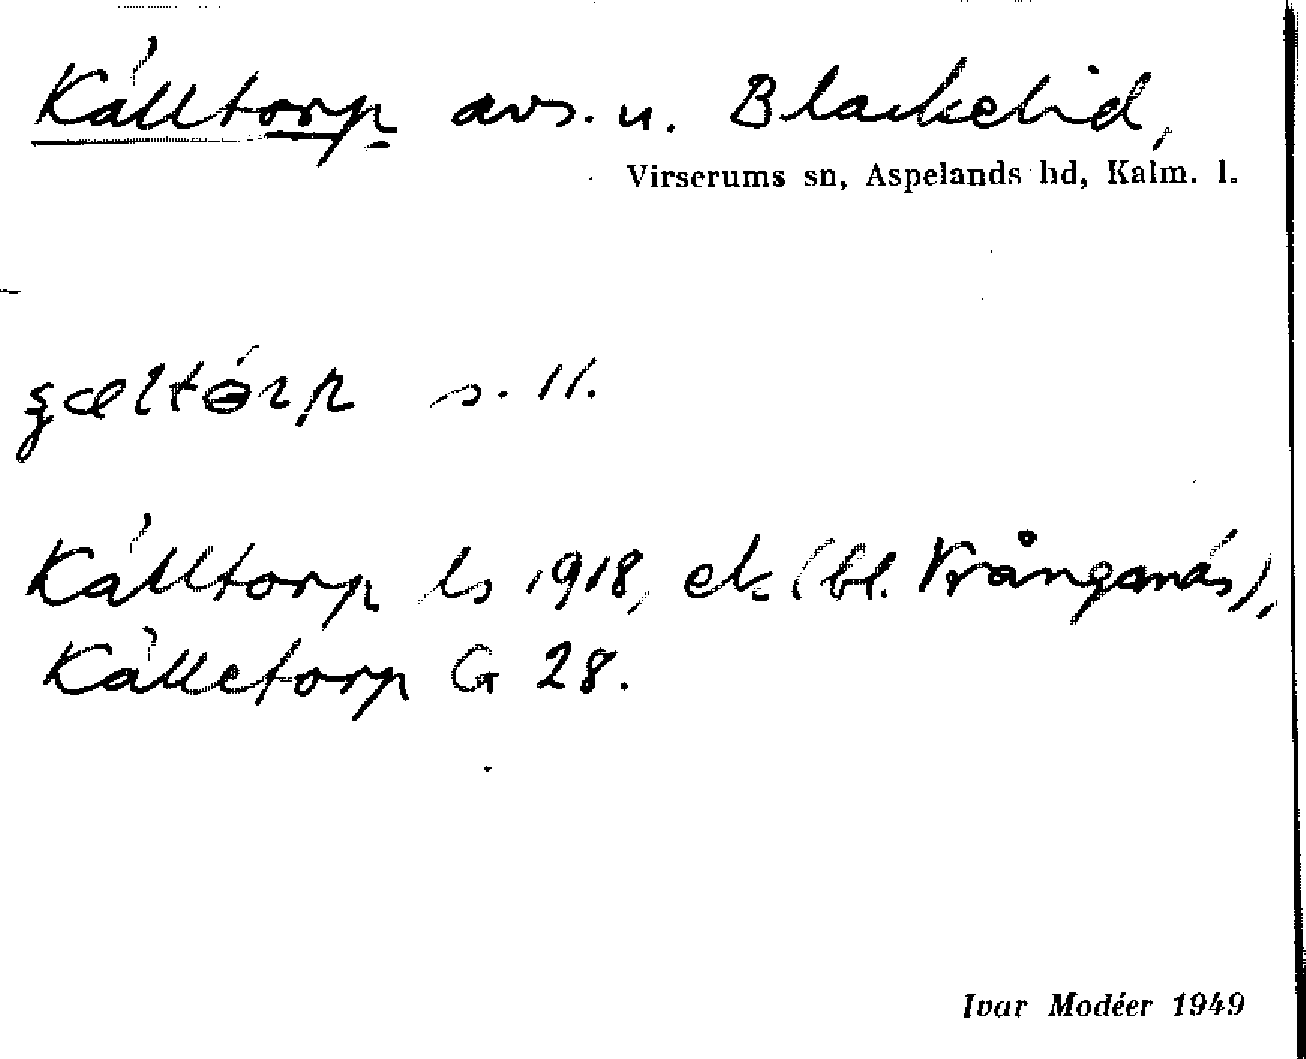 Källtorp avs. u. Blackelid,
Virserums sn, Aspelands hd, Kalm. l.
s. 11.
Källtorp ls 1918, ek (bl. Vrångenäs),
Källetorp G 28.
Ivar Modéer 1949